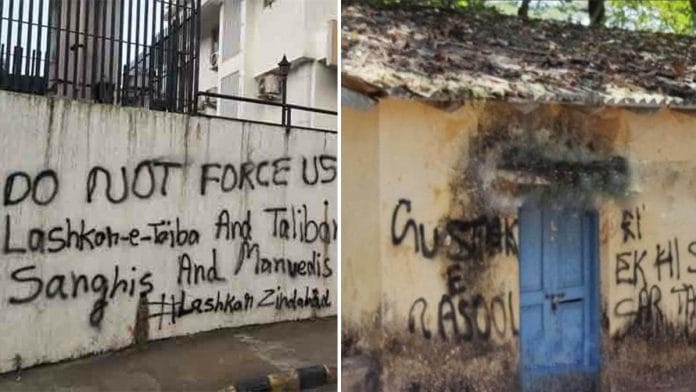 DO NOT FORCE US
Lashkar-e-Taiba And Taliban
Sanghis And Manvedis
#Lashkar Zindabad
GUSTAK
E
RASOOL
RI
EK HI S
SAR T